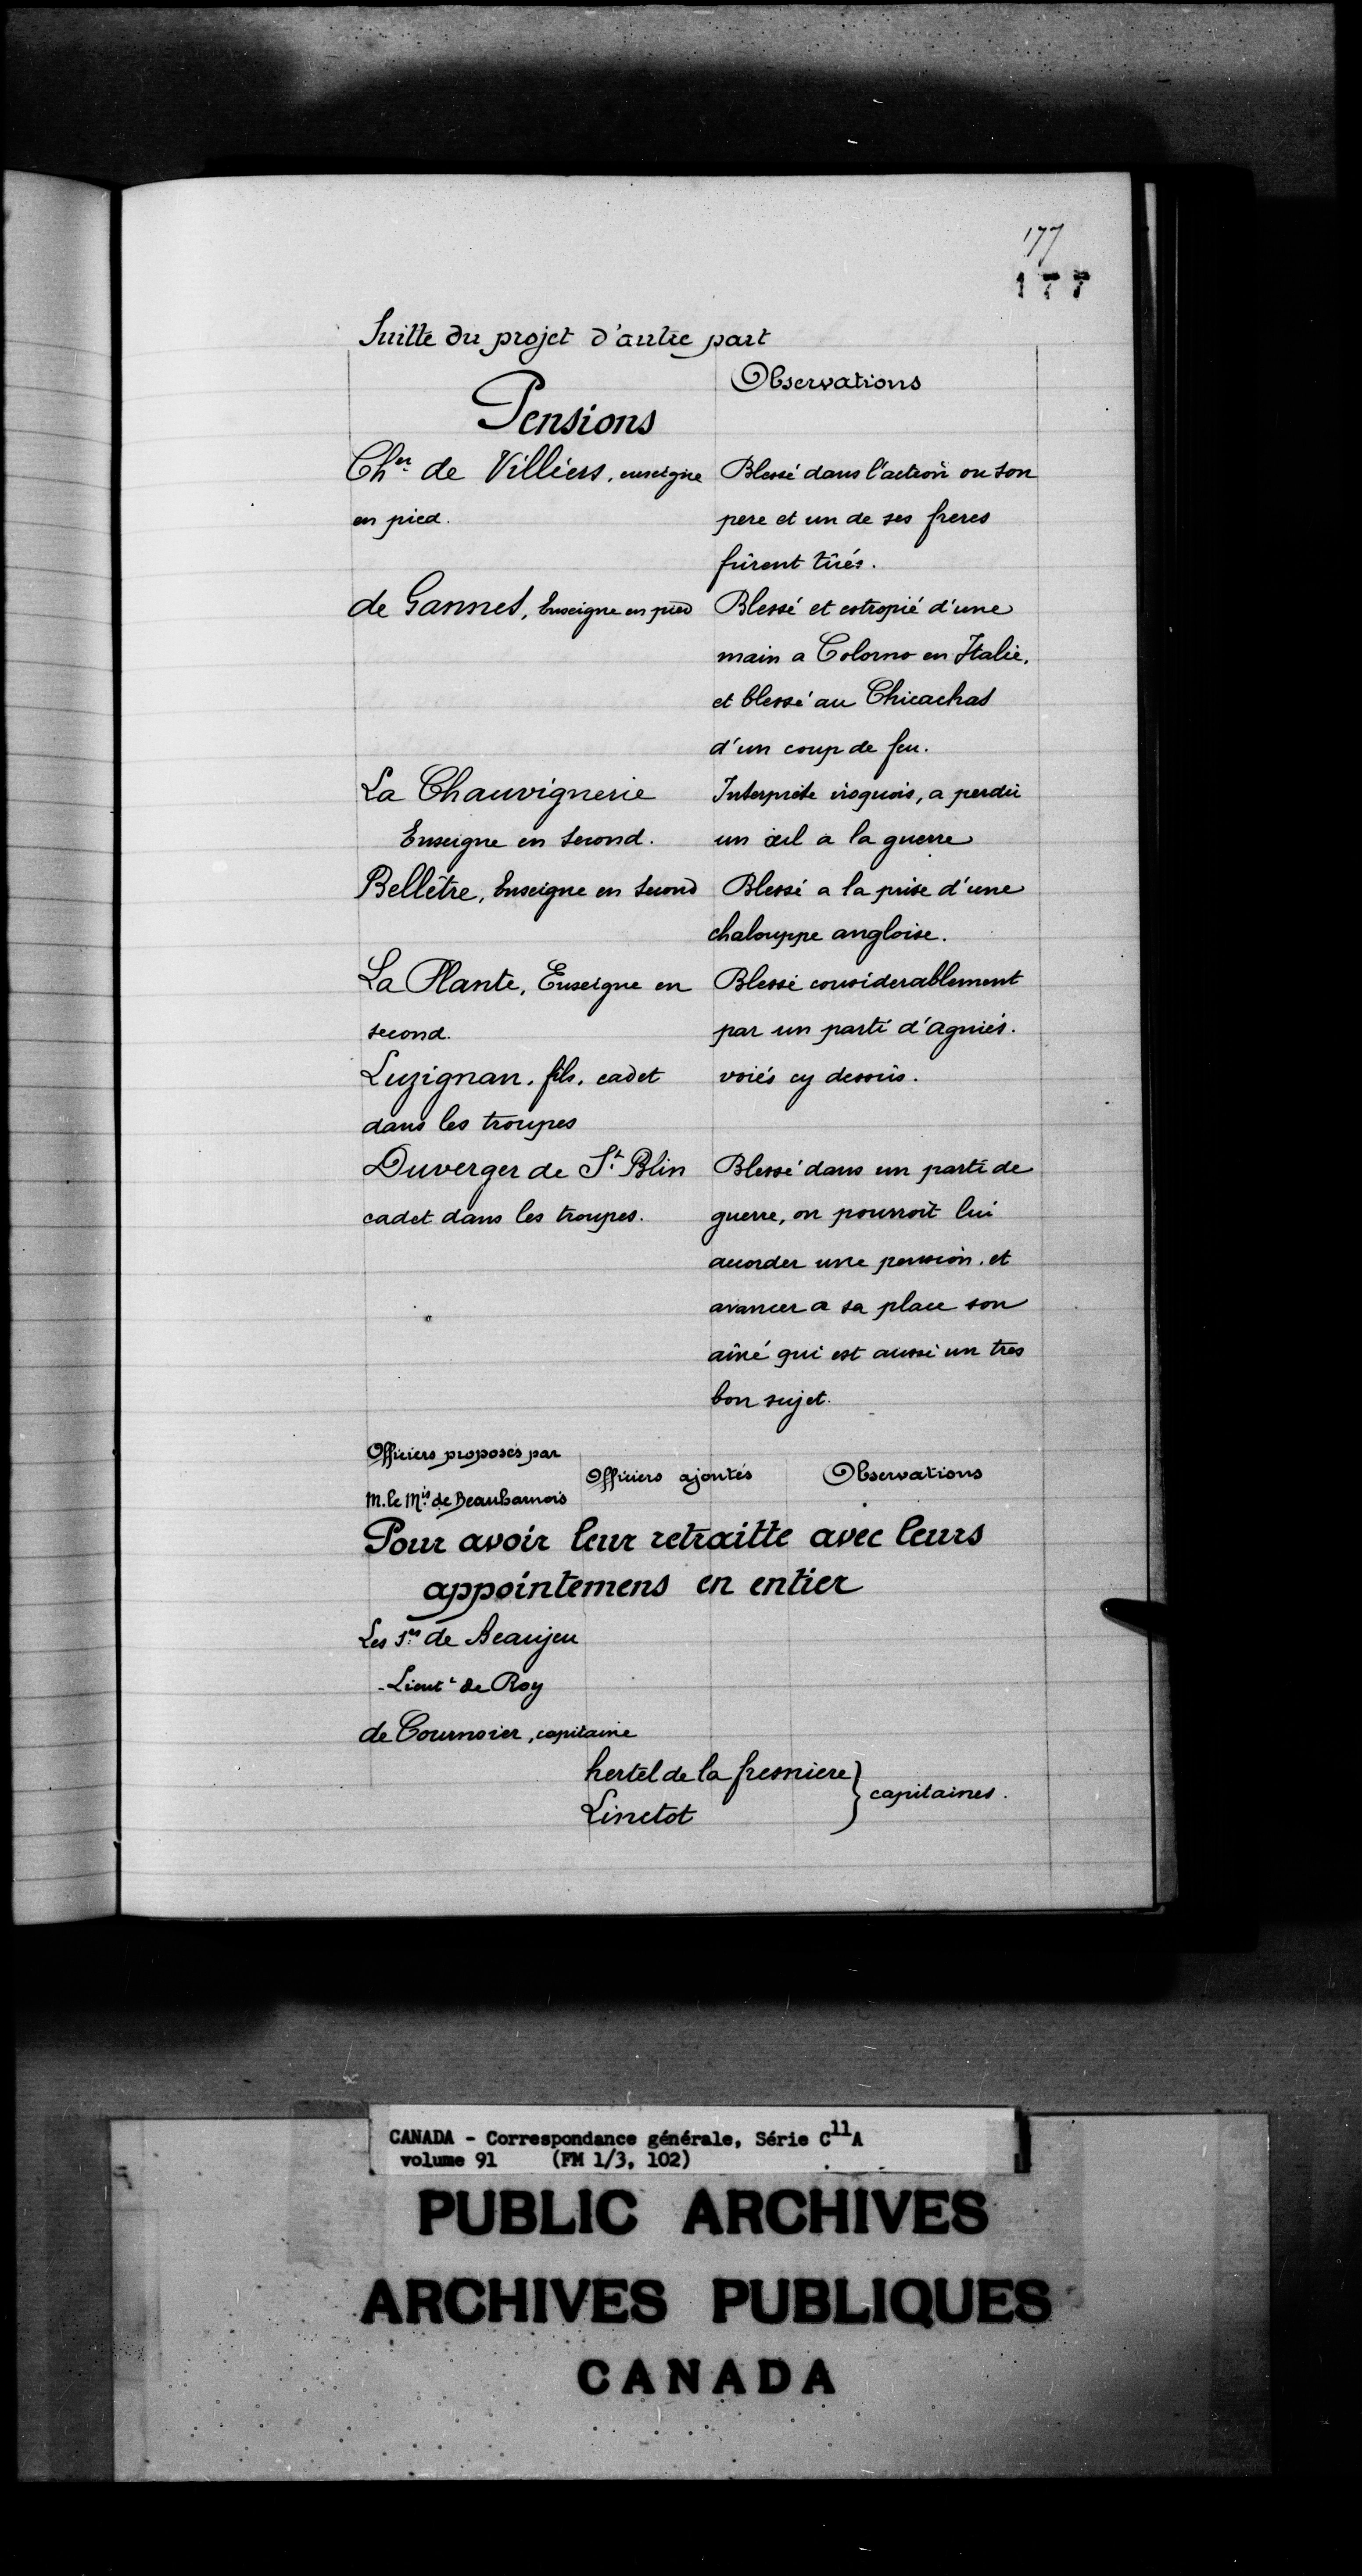 177
177
Suitte du projet d'autre part
Observations
Pensions
Cher de Villiers, enseigne
en pied.
Blessé dans l'action ou son
pere et un de ses freres
fûrent tüés.
de Gannes, Enseigne en pied
Blessé et estropié d'une
main a Colorno en Italie,
et blessé au Chicachas
d'un coup de feu.
La Chauvignerie
Enseigne en Second.
Interprete iroquois, a perdu
un œil a la guerre
Bellêtre, Enseigne en Second
Blessé a la prise d'une
chalouppe angloise.
La Plante, Enseigne en
second.
Blessé considerablement
par un parti d'agniés.
Luzignan, fils, cadet
dans les troupes
voiés cy dessus.
Duverger de St Blin
cadet dans les troupes.
Blessé dans un parti de
guerre, on pourroit lui
accorder une pension, et
avancer a sa place son
aîné qui est aussi un tres
bon sujet.
Officiers proposés par
M. le Mis de Beauharnois
Officiers ajoutés
Observations
Pour avoir leur retraitte avec leurs
appointemens en entier
Les Srs de Beaujeu
- Lieut de Roy
de Cournoier, capitaine
hertel de la fresniere
Linctot
} capitaines.
CANADA - Correspondance générale, Série C11A
volume 91 (FM 1/3, 102)
PUBLIC ARCHIVES
ARCHIVES PUBLIQUES
CANADA